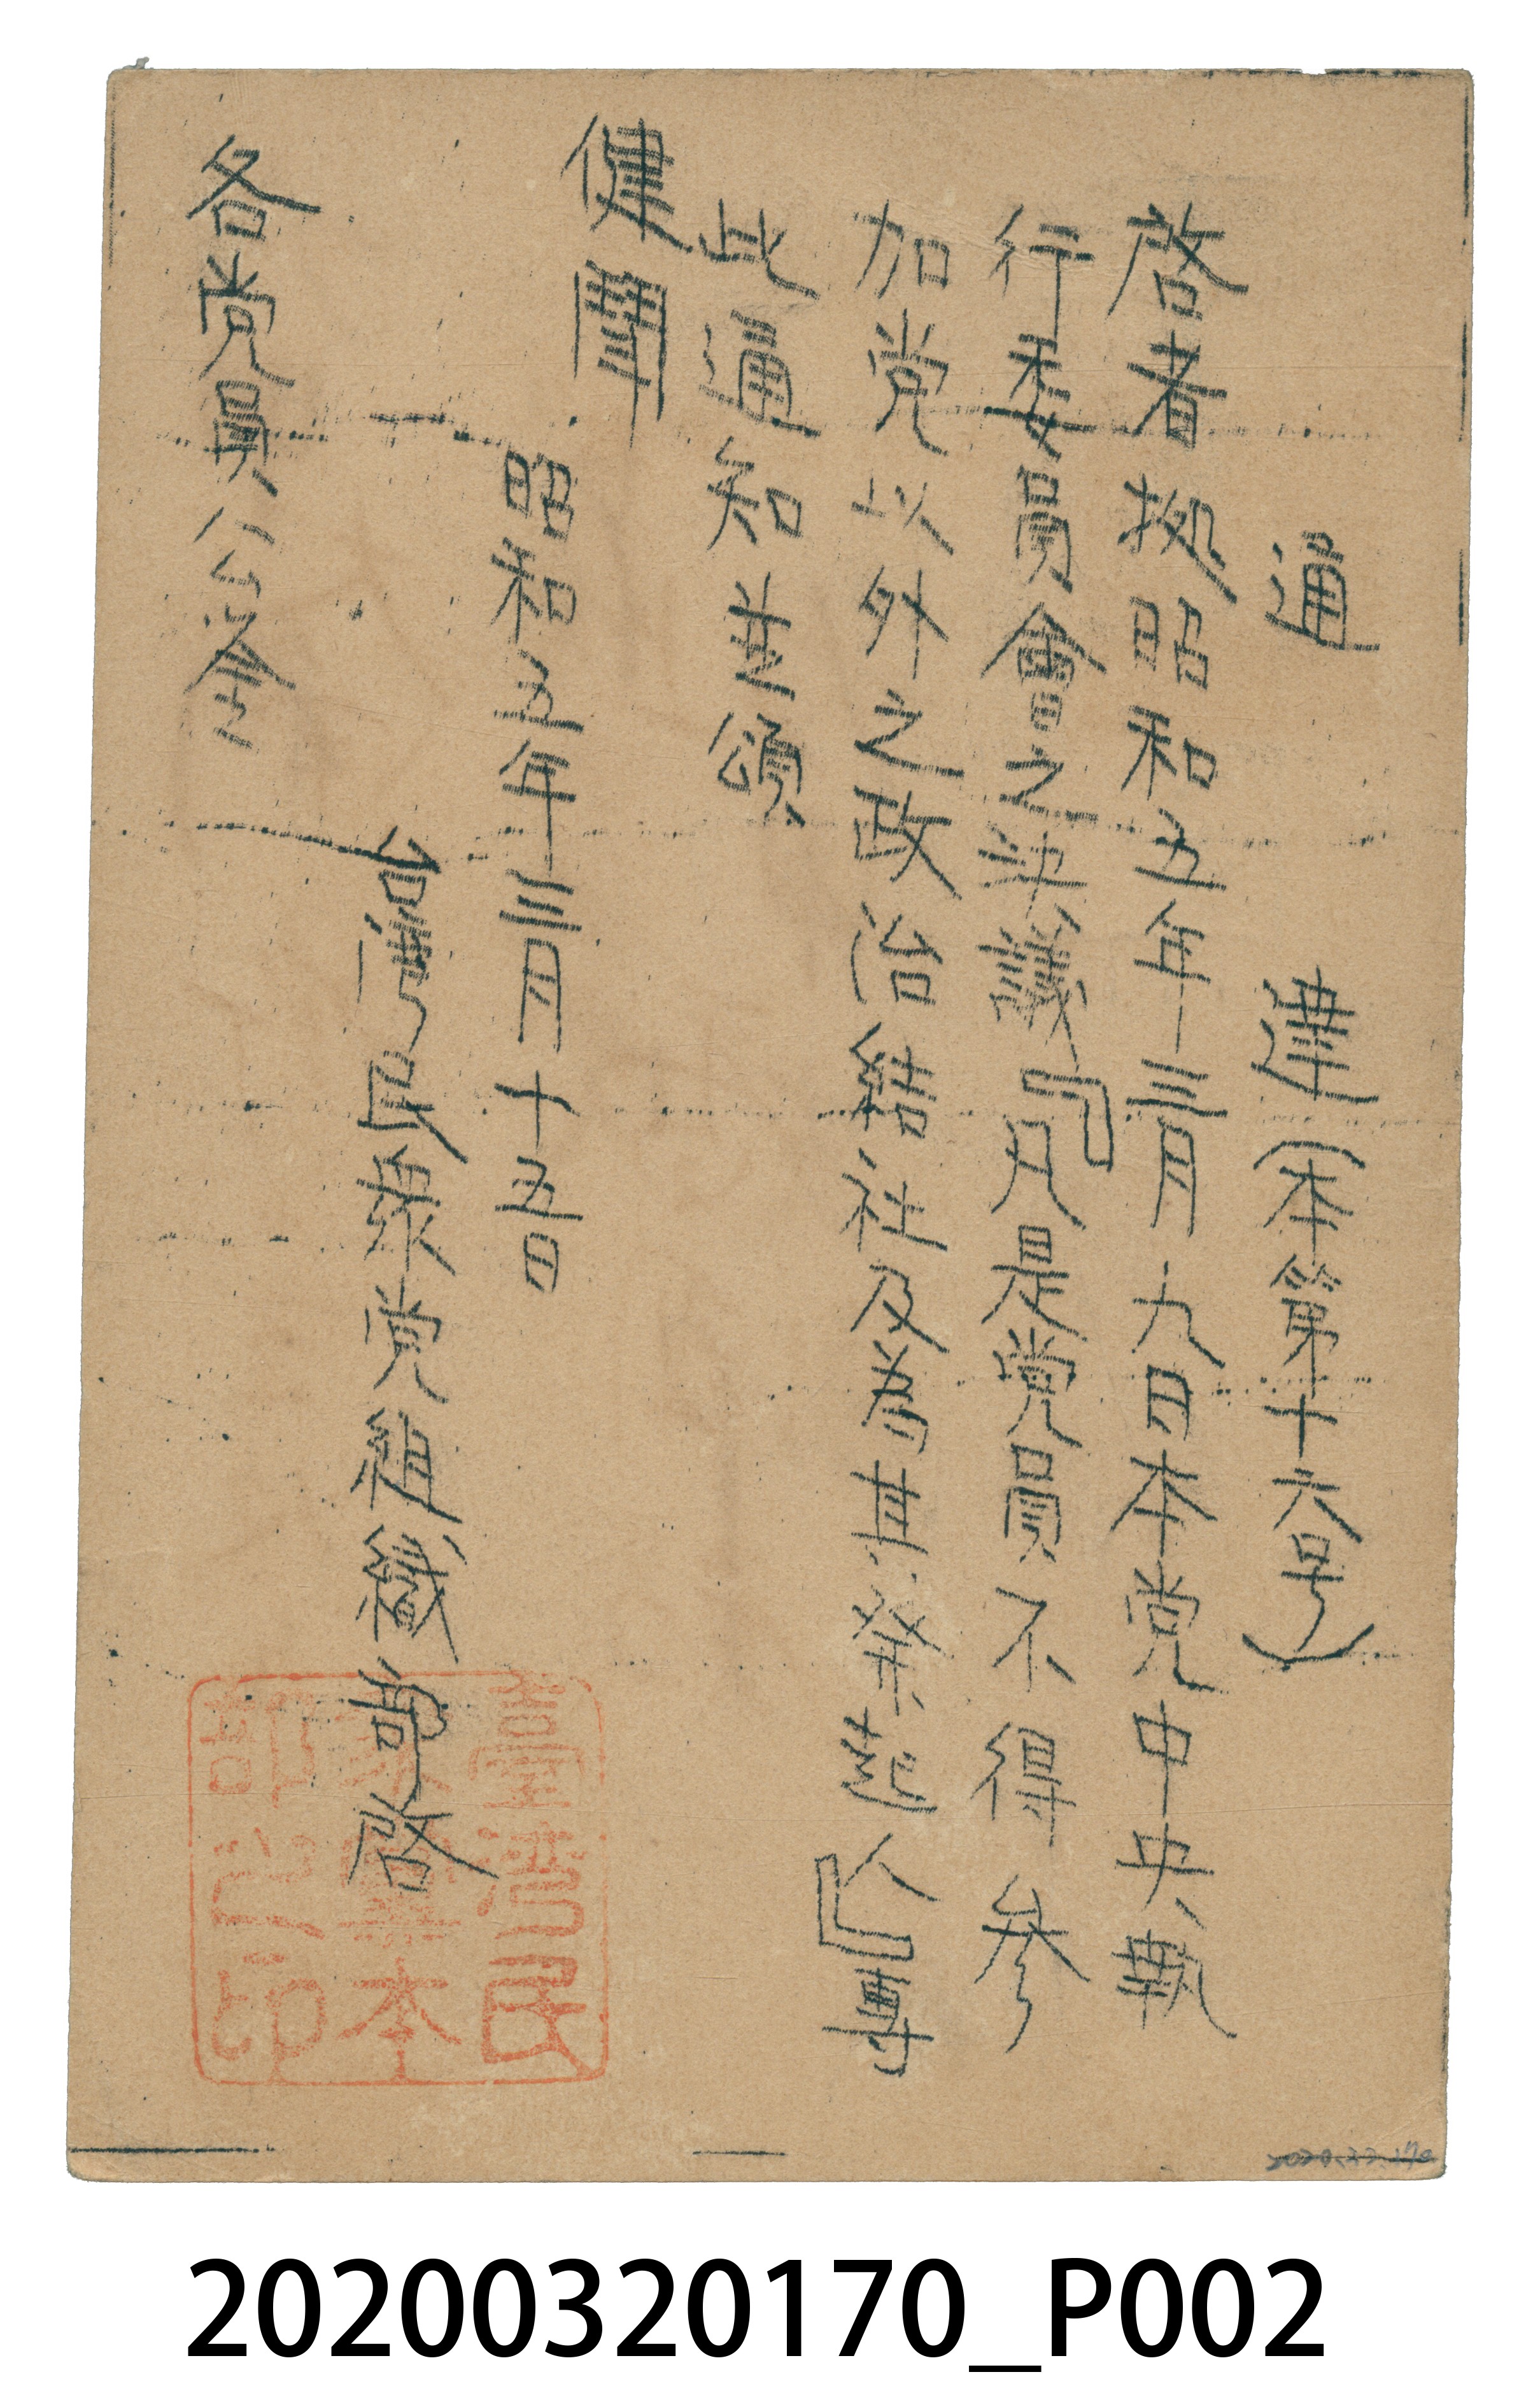 通達(本第十六号)
啓者拠昭和五年三月九日本党中央執
行委員會之決議「凡是党員不得參
加党以外之政治結社及為其発起人」專
此通知並頌
健鬪
昭和五年三月十五日
台湾民衆党組織部啓
各党員公鑒
臺灣民
衆黨本
部之印
2020.32.170
20200320170_P002